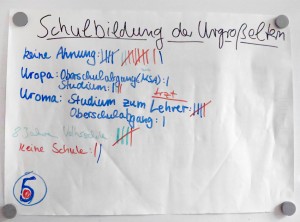 Schulbildung der Urgroßeltern
keine Ahnung:
Uropa: Oberschulabgang (MSA):
Studium:
Arzt
Uroma: Studium zum Lehrer:
Oberschulabgang:
8 Jahre
keine Schule:
5